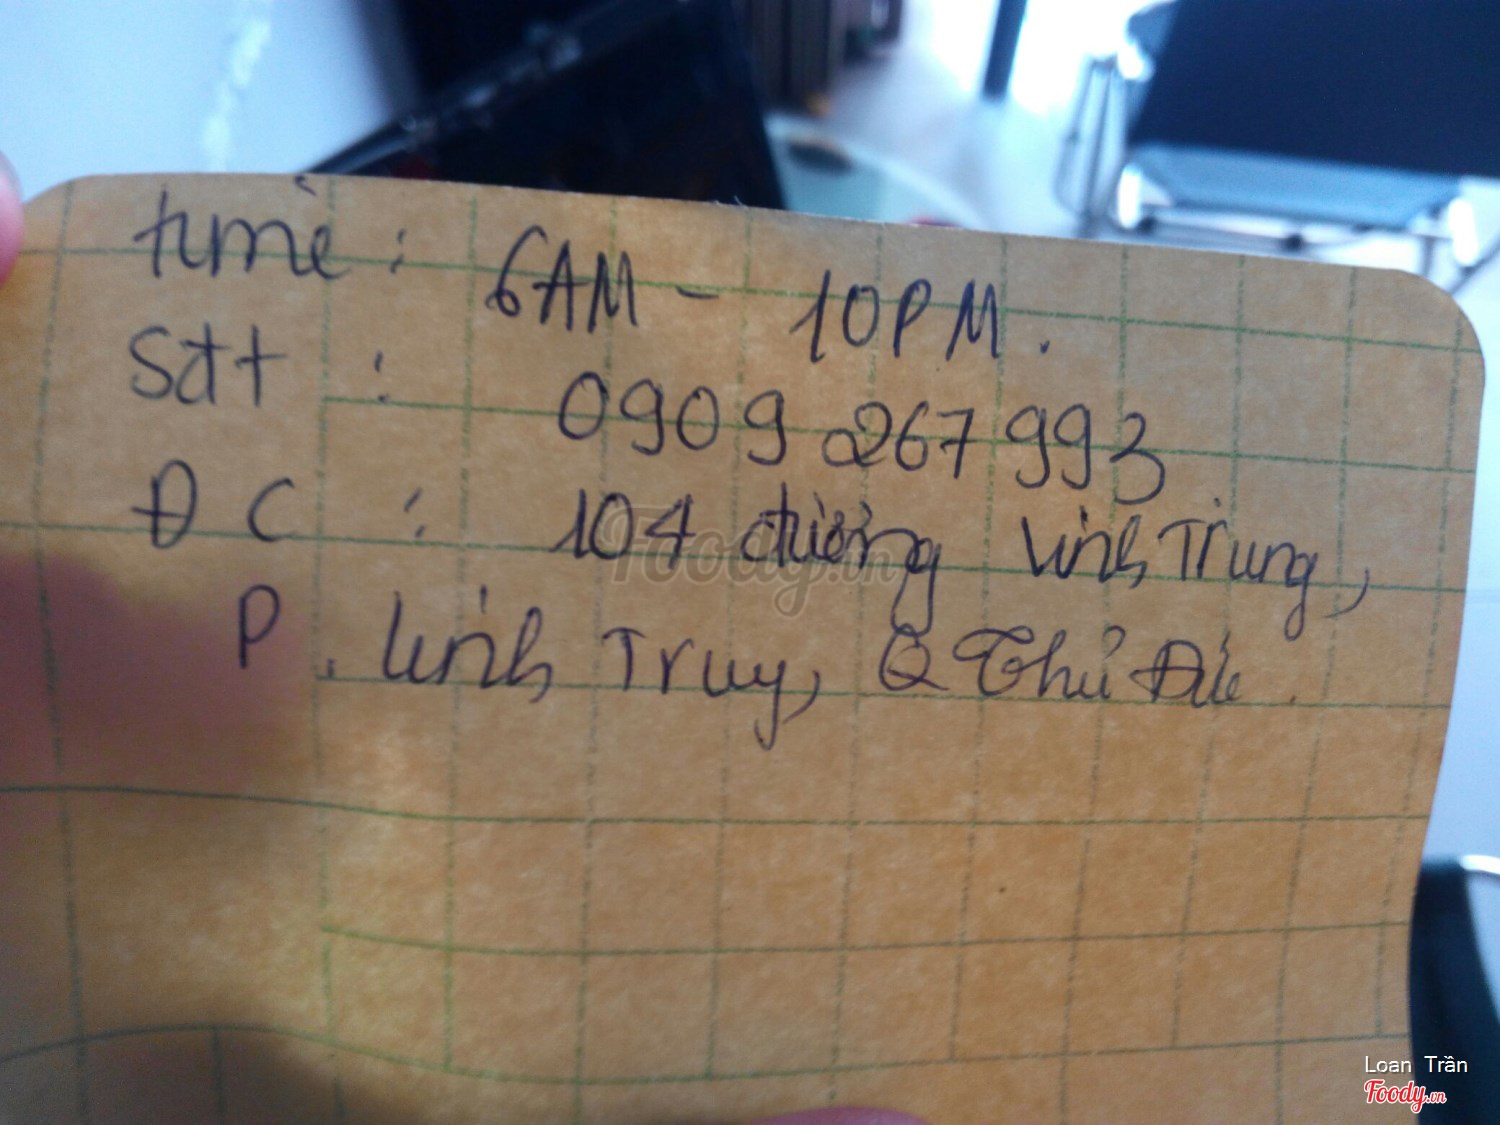 time : 6AM - 10PM.
Sđt : 0909 267 993
ĐC : 104 đường Linh Trung,
P. Linh Truy, Q Thủ Đức.
Foody.vn
Loan Trần
Foody.vn